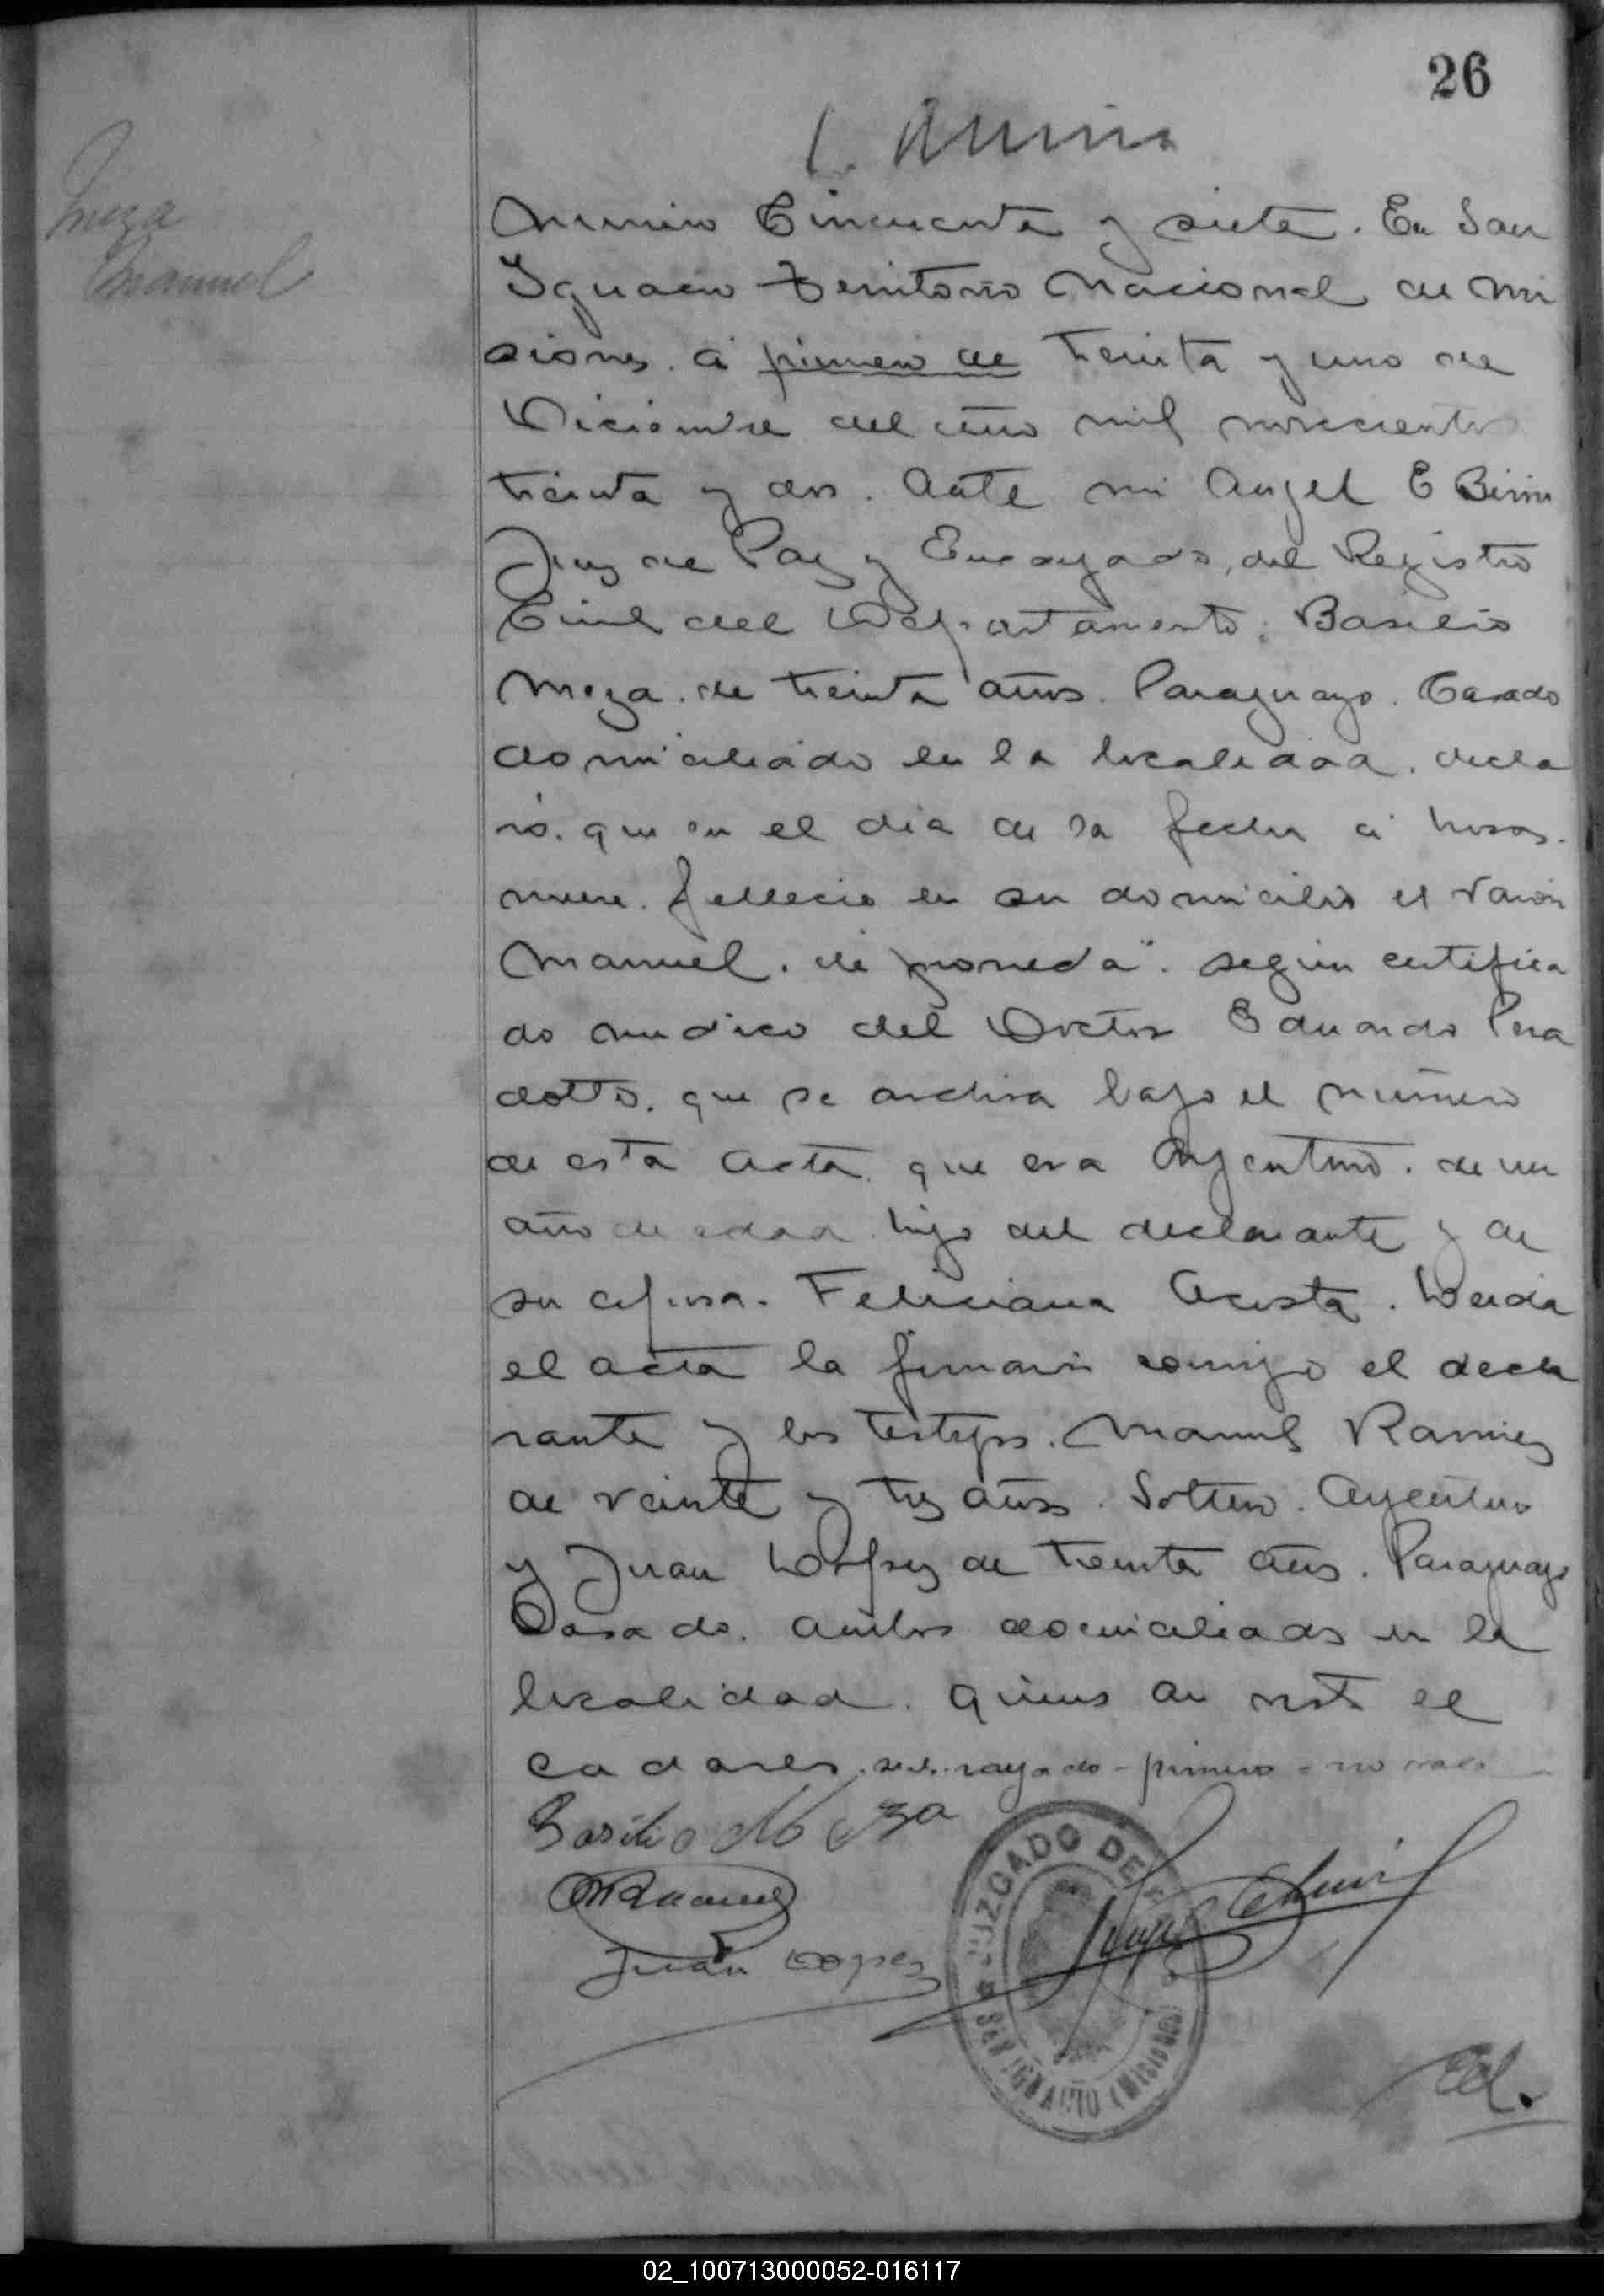 26
Meza
Manuel
Numero Cincuenta y siete. En San
Ygnacio Territorio Nacional de Mi
siones. á primero de treinta y uno de
Diciembre del año mil novecientos
treinta y dos. Ante mi Angel E
Juez de Paz y Encargado, del Registro
Civil del Departamento; Basilio
Meza. de treinta años. Paraguayo. Casado
domiciliado en la localidad. decla
ró. que en el dia de la fecha á horas.
nueve. fallecio en su domicilio el varón
Manuel. de segun certifica
do medico del Doctor Eduardo Pera
dotto. que se archiva bajo el número
de esta acta. que era Argentino. de un
año de edad. hijo del declarante y de
su esposa. Feliciana Acosta. Leida
el acta la firmarón conmigo el decla
rante y los testigos. Manuel Ramirez
de veinte y tres años. Soltero. Argentino
y Juan Lopez de treinta años. Paraguayo
Casado. ambos domiciliados en la
localidad. quienes an visto el
cadaver. sub.rayado - primero - no vale
Basilio Meza
Juan Lopez
JUZGADO DE
SAN IGNACIO (MISIONES)
02_100713000052-016117